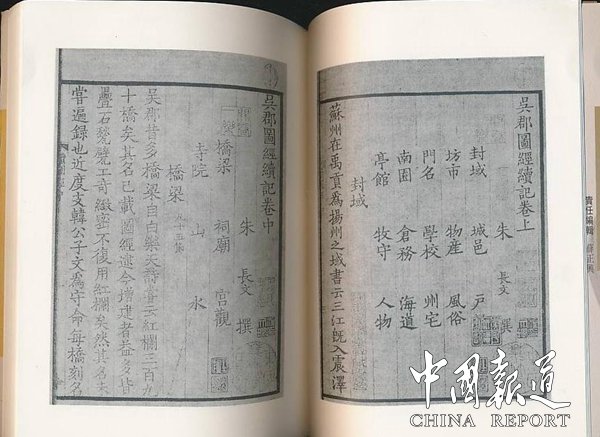 責任編輯 薛正興
吳郡圖經續記卷上
朱 長文 撰
封域 城邑 戶
坊市 物產 風俗
門名 學校 州宅
南園 倉務 海道
亭館 牧守 人物
封域
蘇州在禹貢爲揚州之域書云三江既入震澤
吳郡圖經續記卷中
朱 長文 撰
橋梁 祠廟 宮觀
寺院 山 水
橋梁
吳郡昔多橋梁自白樂天詩嘗云紅欄三百九
十橋矣其名已載圖經逮今增建者益多皆
疊石甃甓工奇緻密不復用紅欄矣然其名未
嘗遍録也近度支韓公子文爲守命每橋刻名
中國報道
CHINA REPORT